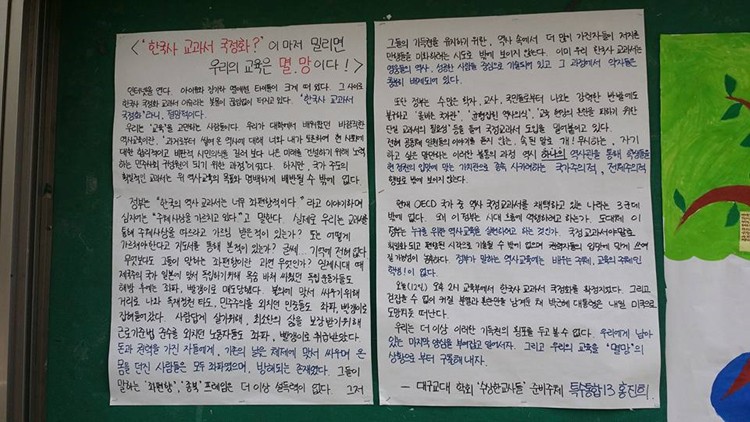 <'한국사 교과서 국정화?' 이 마저 밀리면
우리의 교육은 멸.망이다!>
인터넷을 켠다. 아이유와 장기하 열애설 타이틀이 크게 떠 있다. 그 사이로
한국사 국정화 교과서 이슈라는 봇물이 끊임없이 터지고 있다. '한국사 교과서
국정화'라니, 절망적이다.
우리는 '교육'을 고민하는 사람들이다. 우리가 대학에서 배워왔던 바람직한
역사교육이란, '과거로부터 쌓여온 역사에 대해 너와 내가 토론하며 현 사회에
대한 합리적이고 비판적 시민의식을 길러 보다 나은 미래를 건설하기 위해 노력
하는 민주사회 구성원이 되기 위한 과정'이었다. 하지만, 국가 주도의
획일적인 교과서는 위 역사교육의 목표와 명백하게 배반될 수 밖에 없다.
정부는 "한국의 역사 교과서는 너무 좌편향적이다"라고 이야기하며
심지어는 "주체사상을 가르치고 있다"고 말한다. 실제로 우리는 교과서를
통해 주체사상을 따르라고 가르침 받은적이 있는가? 또는 어떻게
가르쳐야한다고 지도서를 통해 본적이 있는가? 글쎄... 기억에 전혀 없다.
무엇보다도 그들이 말하는 좌편향이란 과연 무엇인가? 일제시대 때
제국주의 국가 일본에 맞서 독립하기위해 목숨 바쳐 싸웠던 독립운동가들도
해방 후에는 좌파, 빨갱이로 매도당했다. 불의에 맞서 싸우기위해
거리로 나와 독재정권 타도, 민주주의를 외치던 민중들도 좌파, 빨갱이로
잡혀들어갔다. 사람답게 살기위해, 최소한의 삶을 보장받기위해
근로기준법 준수를 외치던 노동자들도 좌파, 빨갱이로 취급받았다.
돈과 권력을 가진 자들에게, 기존의 낡은 체제에 맞서 싸우며 온
몸을 던진 사람들은 모두 좌파였으며, 방해되는 존재였다. 그들이
말하는 '좌편향', '종북' 프레임은 더 이상 설득력이 없다. 그저
그들의 기득권을 유지하기 위한, 역사 속에서 더 많이 가진자들이 저지른
만행들을 미화하려는 시도로 밖에 보이지 않는다. 이미 우리 한국사 교과서는
영웅들의 역사, 성공한 사람들 중심으로 기술되어 있고 그 과정에서 약자들은
철저히 배제되어 있다.
또한 정부는 수많은 학자, 교사, 국민들로부터 나오는 강력한 반발에도
불구하고 "올바른 국가관", "균형잡힌 역사의식", "교육 현장의 혼란을 피하기 위한
단일 교과서의 필요성" 등을 들며 국정교과서 도입을 밀어붙이고 있다.
전혀 공론화 일원들의 이야기를 듣지 않는, 속된 말로 개!무시하는, 자기
하고 싶은 말만하는 이러한 불통의 과정 역시 하나의 역사관을 통해 학생들을
한 정권의 입맛에 맞는 가치관으로 종속 시키려하는 국가주의적, 전체주의적
행보로 밖에 보이지 않는다.
현재 OECD 국가 중 역사 국정교과서를 채택하고 있는 나라는 3군데
밖에 없다. 오매 이 정부는 시대 흐름에 역행하려고 하는가. 도대체 이
정부는 누구를 위한 역사교육을 실현하려고 하는 것인가. 국정 교과서야말로
획일화되고 편향된 시각으로 기술될 수 밖에 없으며 권력자들의 입맛에 맞게 쓰여
질 가능성이 농후하다. 정부가 말하는 역사교육에는 배우는 주체, 교육의 주체인
학생이 없다.
오늘(12일) 오후 2시 교육부에서 한국사 교과서 국정화를 확정지었다. 그리고
걷잡을 수 없이 커질 분열과 혼란만을 남겨둔 채 박근혜 대통령은 내일 미국으로
도망치듯 떠난다.
우리는 더 이상 이러한 기득권의 횡포를 두고 볼 수 없다. 우리에게 남아
있는 마지막 양심을 부여잡고 일어서자. 그리고 우리의 교육을 "멸망"의
상황으로 부터 구출해 내자.
- 대구교대 학회 '수상한교사들' 준비주체 특수통합13 홍진희